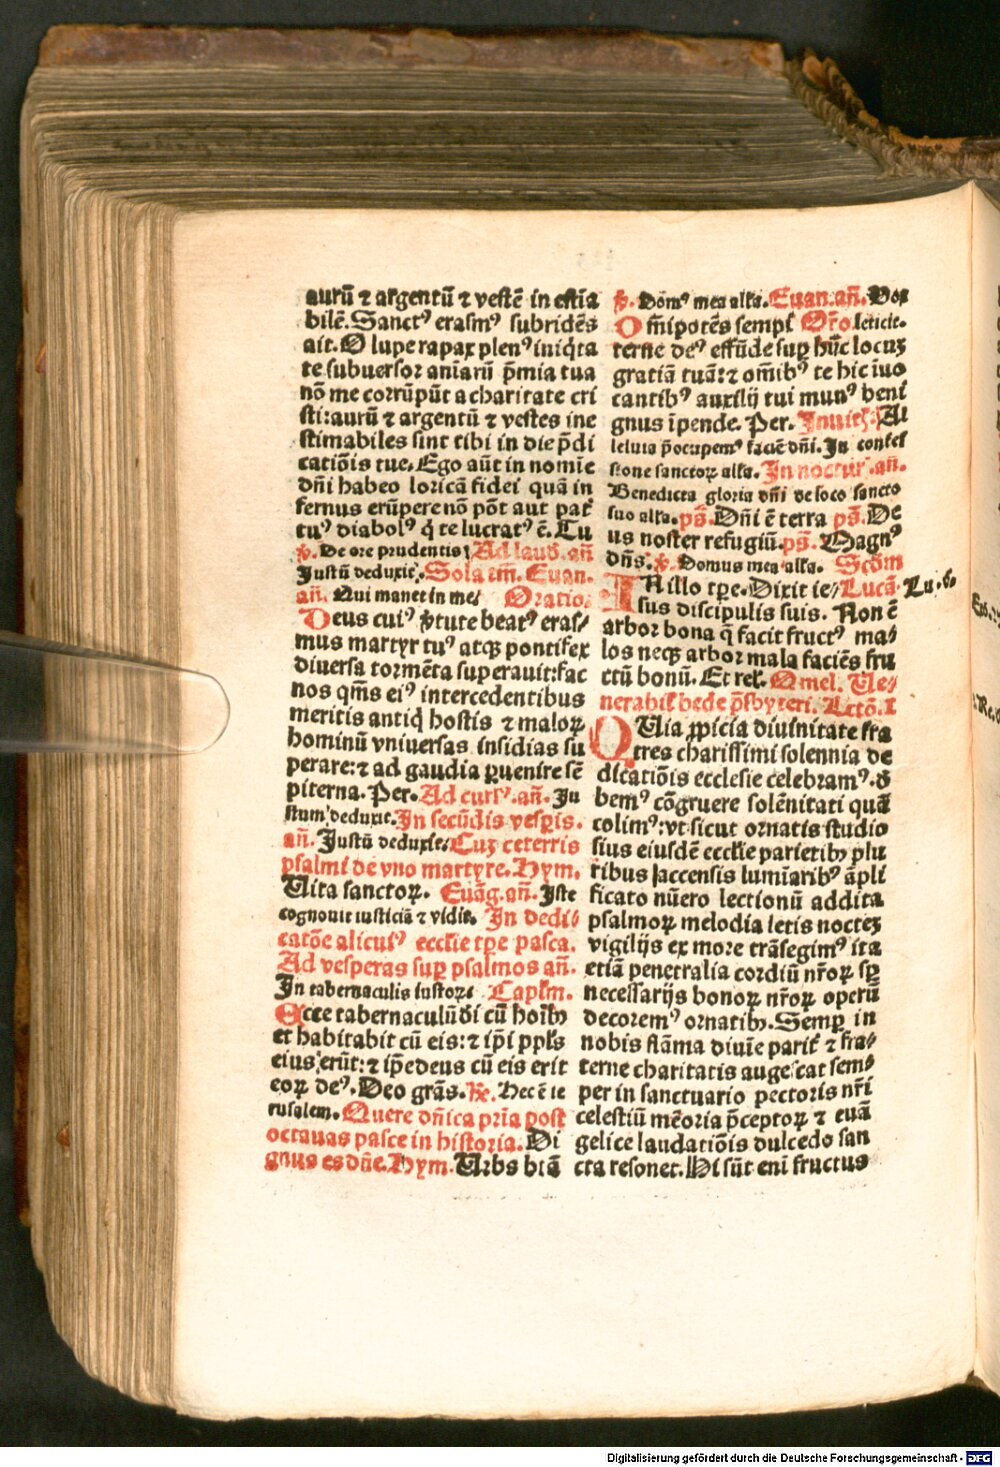 aurū ⁊ argentū ⁊ vestē in estia
bilē. Sanctꝰ erasmꝰ subridēs
ait. O lupe rapax plenꝰ iniq̇ta
te subuersor aniarū p̄mia tua
nō me corrūpūt a charitate cri
sti: aurū ⁊ argentū ⁊ vestes ine
stimabiles sint tibi in die p̄di
catiōis tue. Ego aūt in nomīe
dn̄i habeo loricā fidei quā in
fernus erūpere nō pōt aut pat̄
tuꝰ diabolꝰ q̇ te lucratꝰ ē. Tu
℣. De ore prudentis. Ad laud. an̄
Justū deduxit. Sola cm̄. Euan.
an̄. Qui manet in me. Oratio.
Deus cuiꝰ v̄tute beatꝰ eras
mus martyr tuꝰ atqꝫ pontifex
diuersa tormēta superauit: fac
nos qm̄s eiꝰ intercedentibus
meritis antiq̇ hostis ⁊ maloꝝ
hominū vniuersas insidias su
perare: ⁊ ad gaudia ꝑuenire sē
piterna. Per. Ad cursꝰ. an̄. Ju
stum deduxit. In secūdis vesꝑis.
an̄. Justū deduxit. Cuꝫ ceterris
psalmi de vno martyre. Hym.
Vita sanctoꝝ. Euāg. an̄. Iste
cognouit iusticiā ⁊ vidit. In dedi
catōe alicuiꝰ ecclie tꝑe pasca.
Ad vesperas suꝑ psalmos an̄.
In tabernaculis iustoꝝ. Caplm̄.
Ecce tabernaculū di cū hoībꝰ
et habitabit cū eis: ⁊ ip̄i ppl̄s
eius erūt: ⁊ ip̄e deus cū eis erit
eoꝝ deꝰ. Deo grās. ℟. Hec ē ie
rusalem. Quere dn̄ica pria post
octauas pasce in historia. Di
gnus es dn̄e. Hym. Urbs btā
℣. Domꝰ mea alla. Euan. an̄. Vox
Om̄ipotēs sempi Or̄o leticie.
terne deꝰ effūde suꝑ hūc locuꝫ
gratiā tuā: ⁊ om̄ibꝰ te hic īuo
cantibꝰ auxilij tui munꝰ beni
gnus īpende. Per. Inuit. Al
leluia p̄ocupemꝰ faciē dn̄i. In confes
sione sanctoꝝ alla. In noctur. an̄.
Benedicta gloria dn̄i de loco sancto
suo alla. ps̄. Dn̄i ē terra ps̄. De
us noster refugiū. ps̄. Magnꝰ
dn̄s. ℣. Domus mea alla. Scd̄m
IN illo tꝑe. Dixit ie Lucā. Lu. 6.
sus discipulis suis. Non ē
arbor bona q̄ facit fructꝰ ma
los neqꝫ arbor mala faciēs fru
ctū bonū. Et rel. Omel. Ue
nerabil bede p̄sbyteri. Lctō. I
QUia ꝓpicia diuinitate fra
tres charissimi solennia de
dicatiōis ecclesie celebramꝰ. d
bemꝰ cōgruere solēnitati quā
colimꝰ: vt sicut ornatis studio
sius eiusdē ecclie parietibꝫ plu
ribus ꝑaccensis lumīaribꝰ āpli
ficato nūero lectionū addita
psalmoꝝ melodia letis noctes
vigilijs ex more trāsegimꝰ ita
etiā penetralia cordiū nr̄oꝝ sꝑ
necessarijs bonoꝝ nr̄oꝝ operū
decoremꝰ ornatibꝫ. Semꝑ in
nobis flāma diuīe parit̄ ⁊ fra
terne charitatis augescat sem
per in sanctuario pectoris nr̄i
celestiū mēoria p̄ceptoꝝ ⁊ euā
gelice laudatiōis dulcedo san
cta resonet. Hi sūt eni fructus
Digitalisierung gefördert durch die Deutsche Forschungsgemeinschaft - DFG